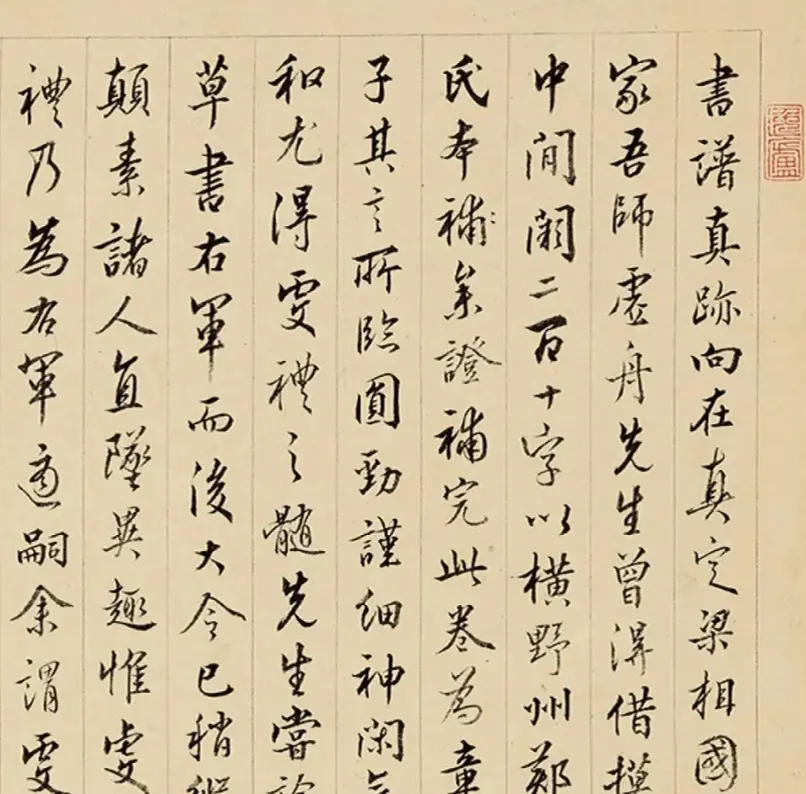 書譜真跡向在真定梁相國
家吾師虛舟先生曾淂借摸
中間闕二百十字以橫野州鄭
氏本補叅證補完此卷為章
子其言所臨圓勁謹細神閑
和尤得虔禮之髓先生嘗論
草書右軍而後大令已稍縱
顛素諸人直墜異趣惟虔
禮乃為右軍適嗣余謂虔